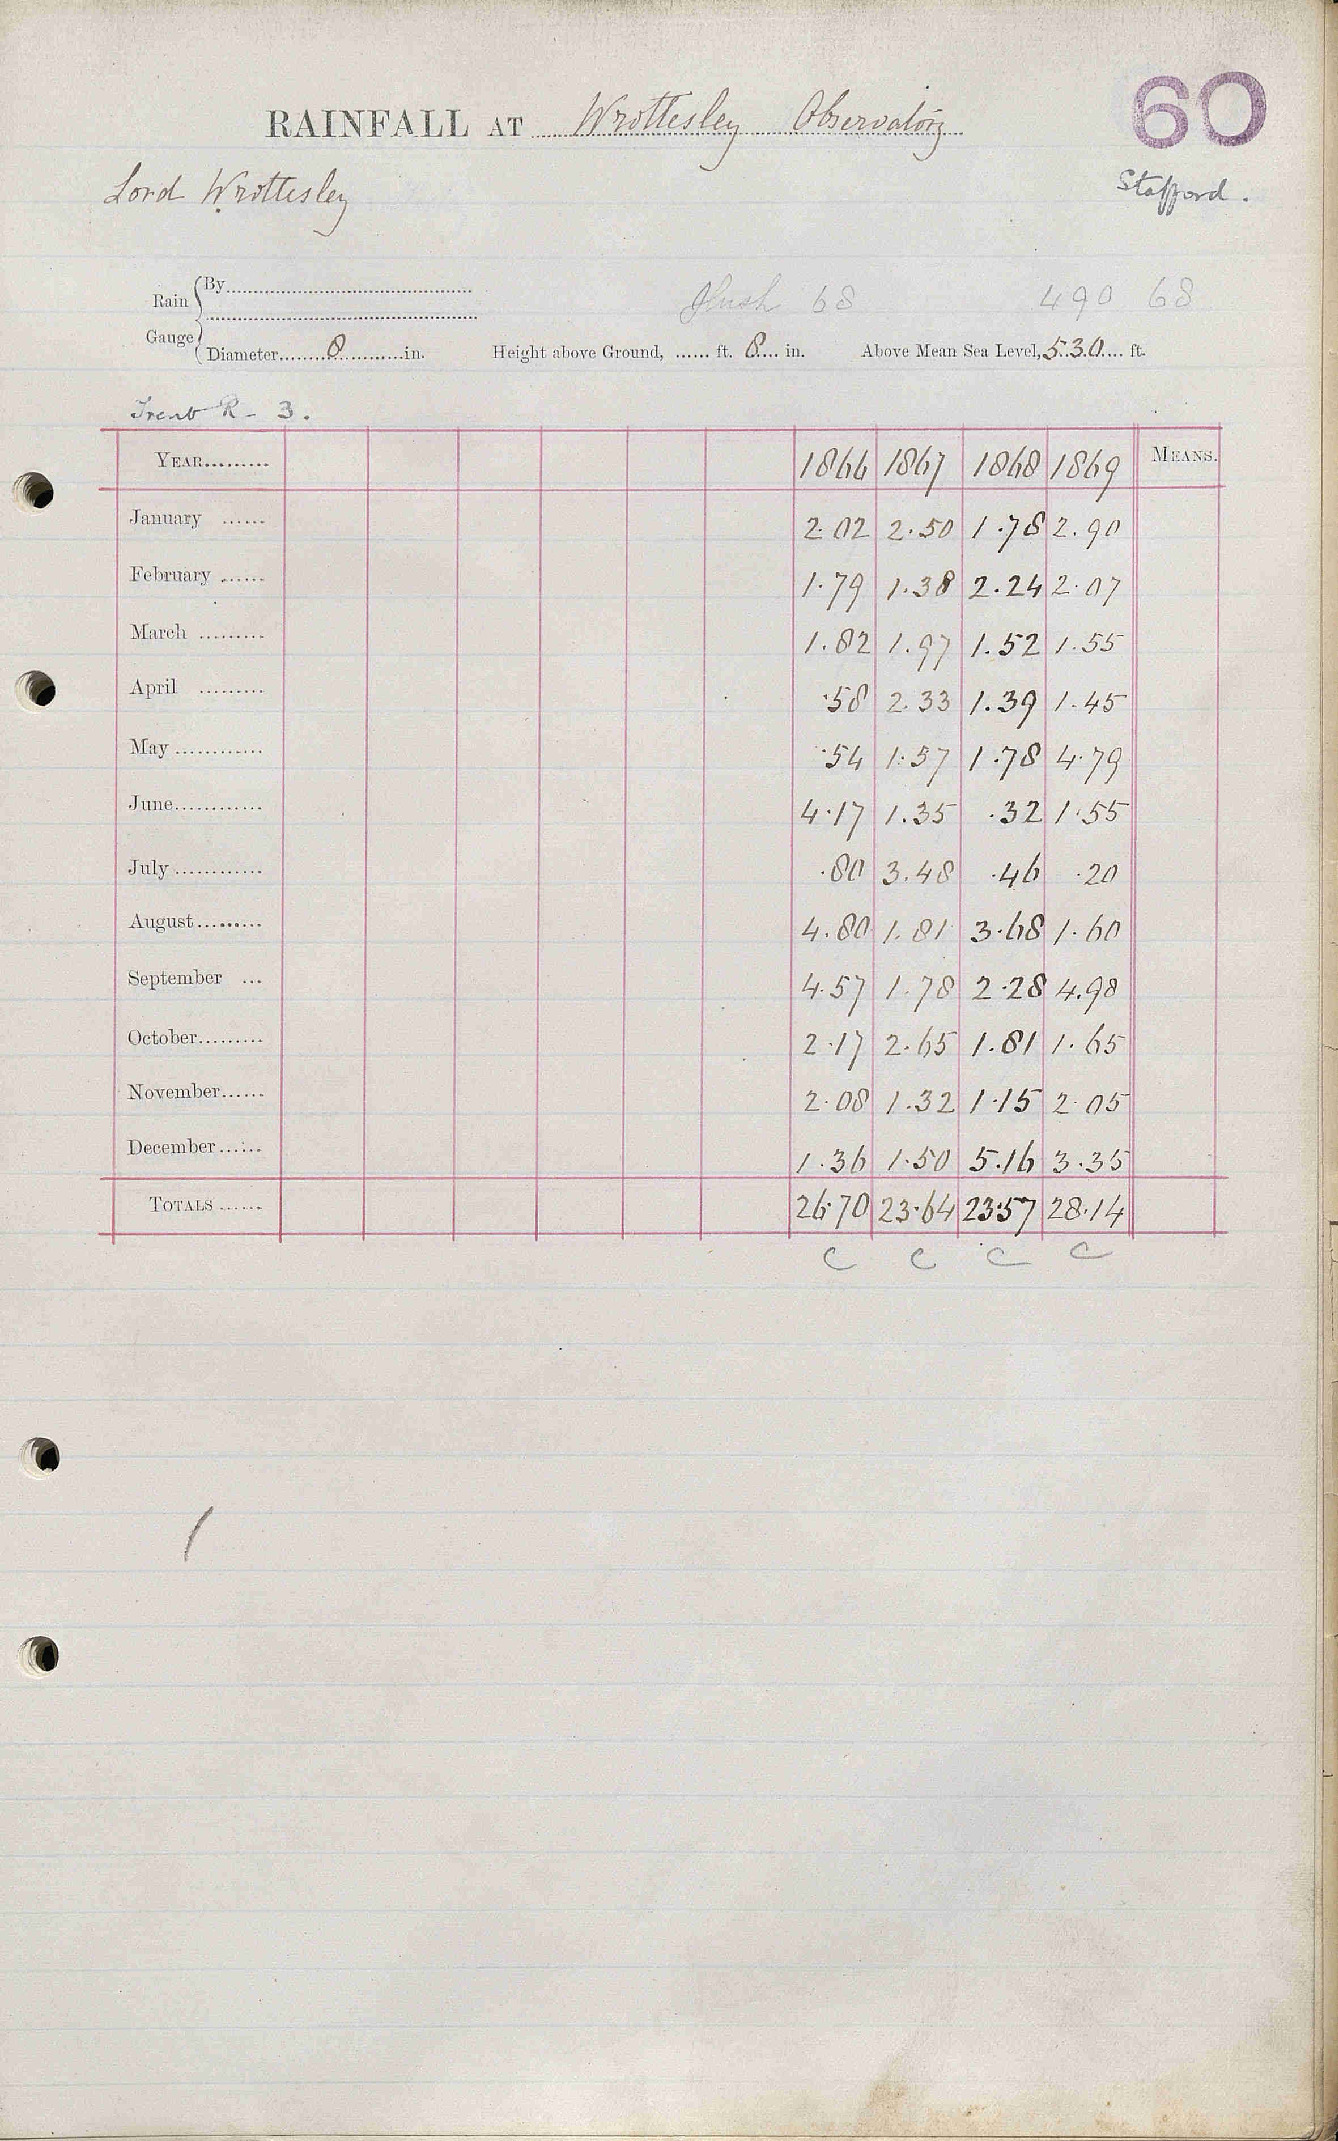 60
RAINFALL AT Wrottesley Observatory
Lord Wrottesley
Stafford.
flush 68 490 68
Rain Gauge { By
Diameter 8 in. Height above Ground, ...... ft. 8 in. Above Mean Sea Level, 530 ft.
Trent R - 3.
YEAR 1866 1867 1868 1869 MEANS.
January 2.02 2.50 1.78 2.90
February 1.79 1.38 2.24 2.07
March 1.82 1.97 1.52 1.55
April .58 2.33 1.39 1.45
May .54 1.57 1.78 4.79
June 4.17 1.35 .32 1.55
July .80 3.48 .46 .20
August 4.80 1.81 3.68 1.60
September 4.57 1.78 2.28 4.98
October 2.17 2.65 1.81 1.65
November 2.08 1.32 1.15 2.05
December 1.36 1.50 5.16 3.35
TOTALS 26.70 23.64 23.57 28.14
C C C C